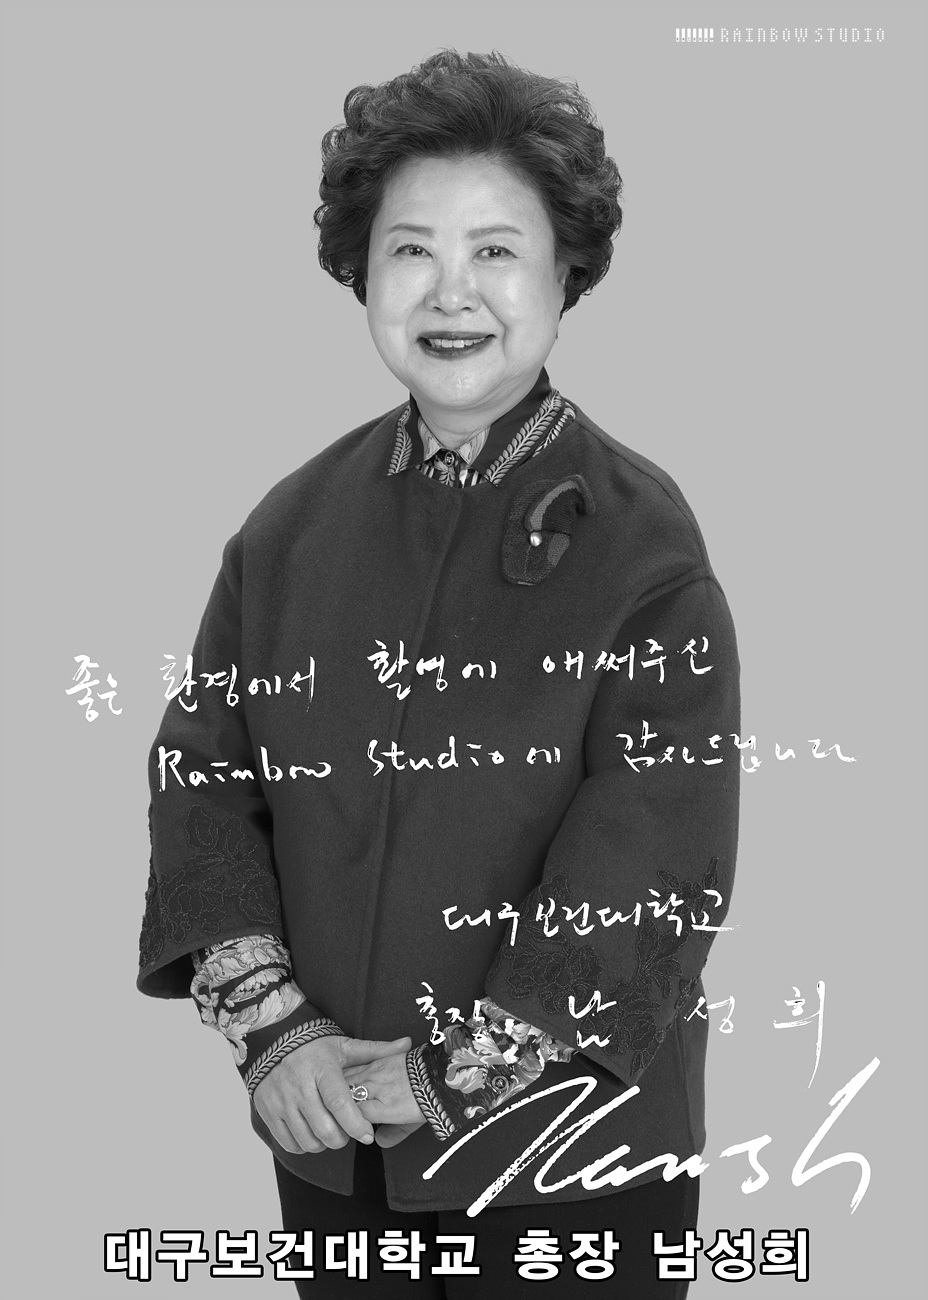 RAINBOW STUDIO
좋은 환경에서 촬영에 애써주신
Rainbow Studio에 감사드립니다
대구보건대학교
총장. 남 성 희
Namsh
대구보건대학교 총장 남성희